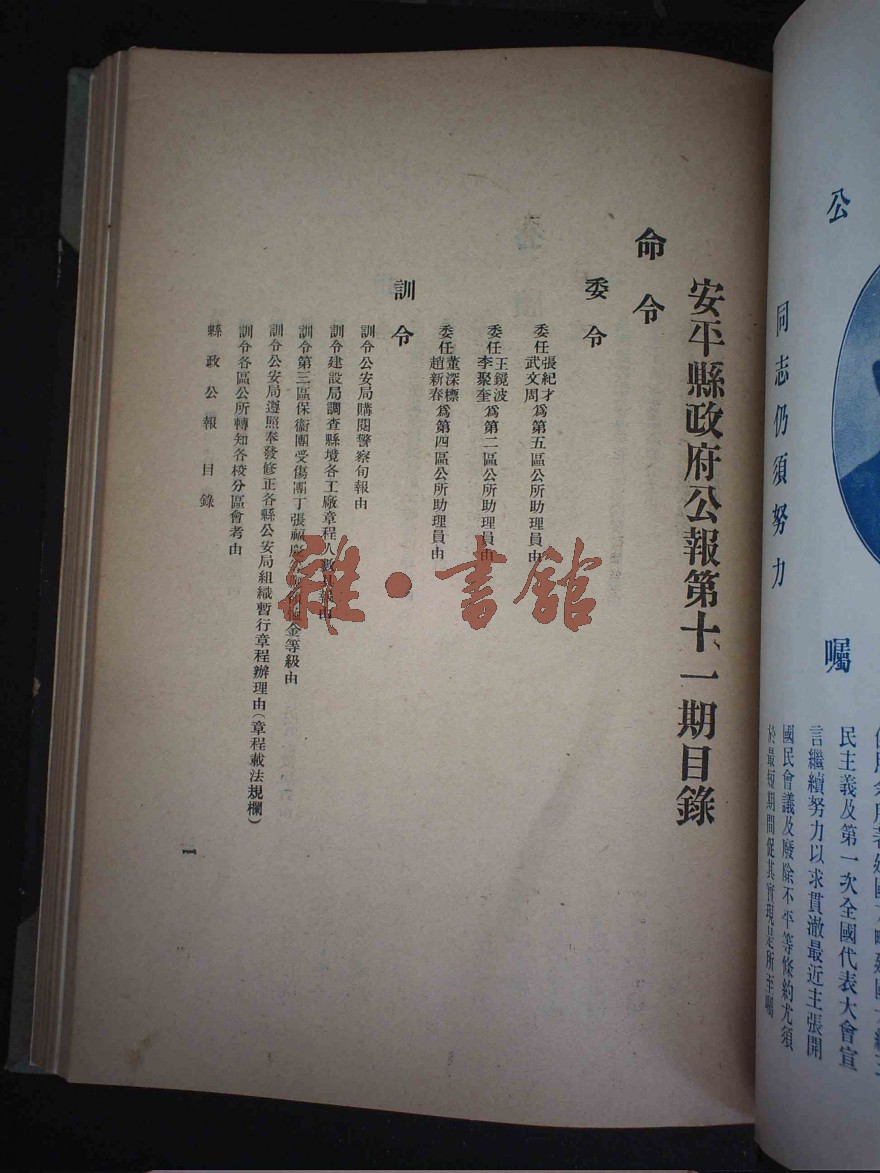 公
同志仍須努力
囑
民主義及第一次全國代表大會宣
言繼續努力以求貫澈最近主張開
國民會議及廢除不平等條約尤須
於最短期間促其實現是所至囑
安平縣政府公報第十一期目錄
命令
委令
委任張紀才武文周為第五區公所助理員由
委任王鏡波李聚奎為第二區公所助理員由
委任董深標趙新春為第四區公所助理員由
訓令
訓令公安局購閱警察旬報由
訓令建設局調查縣境各工廠章程人數具報由
訓令第三區保衛團受傷團丁張福金等級由
訓令公安局遵照奉發修正各縣公安局組織暫行章程辦理由(章程載法規欄)
訓令各區公所轉知各校分區會考由
縣政公報目錄
一
雜·書館